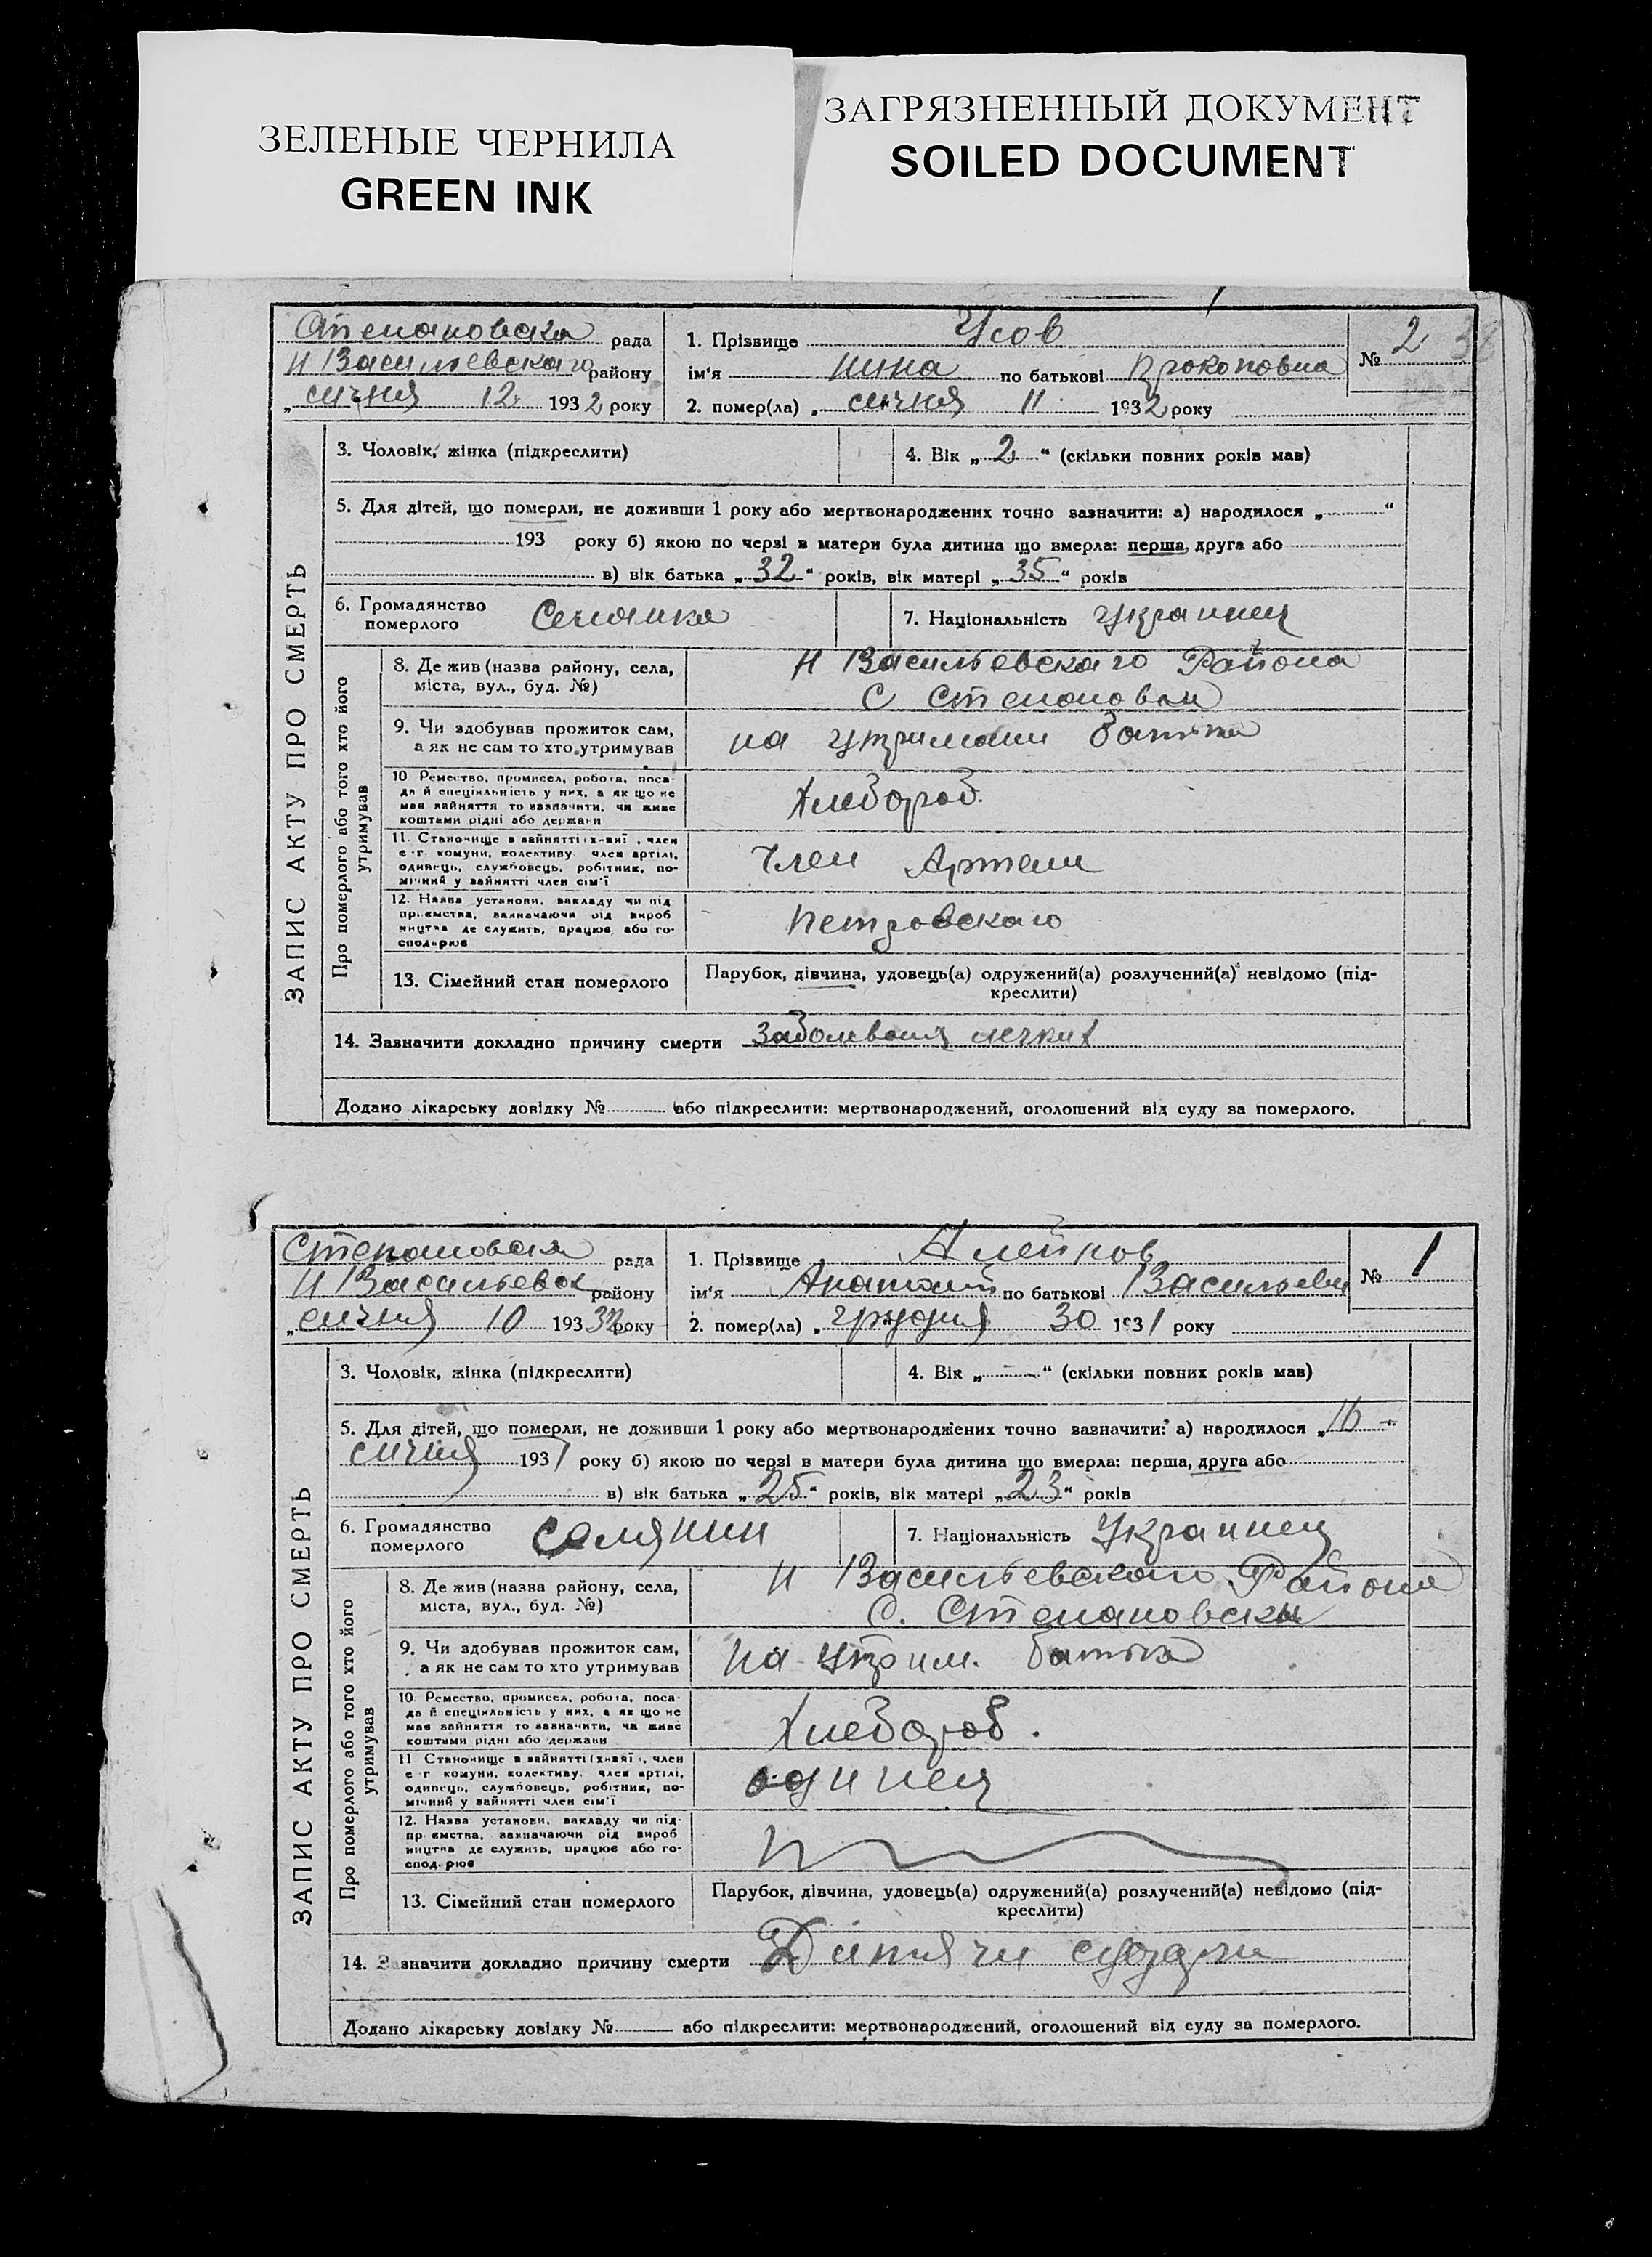 ЗЕЛЕНЫЕ ЧЕРНИЛА
GREEN INK
ЗАГРЯЗНЕННЫЙ ДОКУМЕНТ
SOILED DOCUMENT
Степановска рада
Н Васильевскаго району
„ січня 12 1932 року
1. Прізвище Усов
ім'я Нина по батькові Прокоповна
2. помер(ла) „ січня 11 1932 року
№ 2 38
ЗАПИС АКТУ ПРО СМЕРТЬ
3. Чоловік, жінка (підкреслити)
4. Вік „ 2 “ (скільки повних років мав)
5. Для дітей, що померли, не доживши 1 року або мертвонароджених точно зазначити: а) народилося „ “
193 року б) якою по черзі в матери була дитина що вмерла: перша, друга або
в) вік батька „ 32 “ років, вік матері „ 35 “ років
6. Громадянство
померлого Селянка
7. Національність Украинец
Про померлого або того хто його
утримував
8. Де жив (назва району, села,
міста, вул., буд. №)
Н Васильевскаго Района
С Степановки
9. Чи здобував прожиток сам,
а як не сам то хто утримував
на утримани батька
10 Ремество, промисел, робота, поса-
да й спеціяльність у них, а як що не
має зайняття то зазначити, чи живе
коштами рідні або держави
Хлебороб.
11. Становище в зайнятті (х-яї , член
с-г. комуни, колективу. член артілі,
одинець, службовець, робітник, по-
мічний у зайнятті член сім'ї
Член Артели
12. Назва установи, закладу чи під-
приємства, зазначаючи рід вироб
ництва де служить, працює або го-
сподарює
Петровскаго
13. Сімейний стан померлого
Парубок, дівчина, удовець(а) одружений(а) розлучений(а) невідомо (під-
креслити)
14. Зазначити докладно причину смерти Заболеваня легких
Додано лікарську довідку № або підкреслити: мертвонароджений, оголошений від суду за померлого.
Степановска рада
Н Васильевск району
„ січня 10 1932 року
1. Прізвище
ім'я Анатолий по батькові Васильеви
2. помер(ла) „ грудня 30 1931 року
№ 1
ЗАПИС АКТУ ПРО СМЕРТЬ
3. Чоловік, жінка (підкреслити)
4. Вік „ — “ (скільки повних років мав)
5. Для дітей, що померли, не доживши 1 року або мертвонароджених точно зазначити: а) народилося „ 16 “
січня 1931 року б) якою по черзі в матери була дитина що вмерла: перша, друга або
в) вік батька „ 25 “ років, вік матері „ 23 “ років
6. Громадянство
померлого Селянин
7. Національність Украинец
Про померлого або того хто його
утримував
8. Де жив (назва району, села,
міста, вул., буд. №)
Н Васильевского Района
С. Степановски
9. Чи здобував прожиток сам,
а як не сам то хто утримував
на утрим. батька
10. Ремество, промисел, робота, поса-
да й спеціяльність у них, а як що не
має зайняття то зазначити, чи живе
коштами рідні або держави
Хлебороб.
11 Становище в зайнятті (х-яї , член
с-г комуни, колективу. член артілі,
одинець, службовець, робітник, по-
мічний у зайнятті член сім'ї
одинец
12. Назва установи, закладу чи під-
приємства, зазначаючи рід вироб
ництва де служить, працює або го-
сподарює
13. Сімейний стан померлого
Парубок, дівчина, удовець(а) одружений(а) розлучений(а) невідомо (під-
креслити)
14. Зазначити докладно причину смерти Дитячи судорги
Додано лікарську довідку № або підкреслити: мертвонароджений, оголошений від суду за померлого.